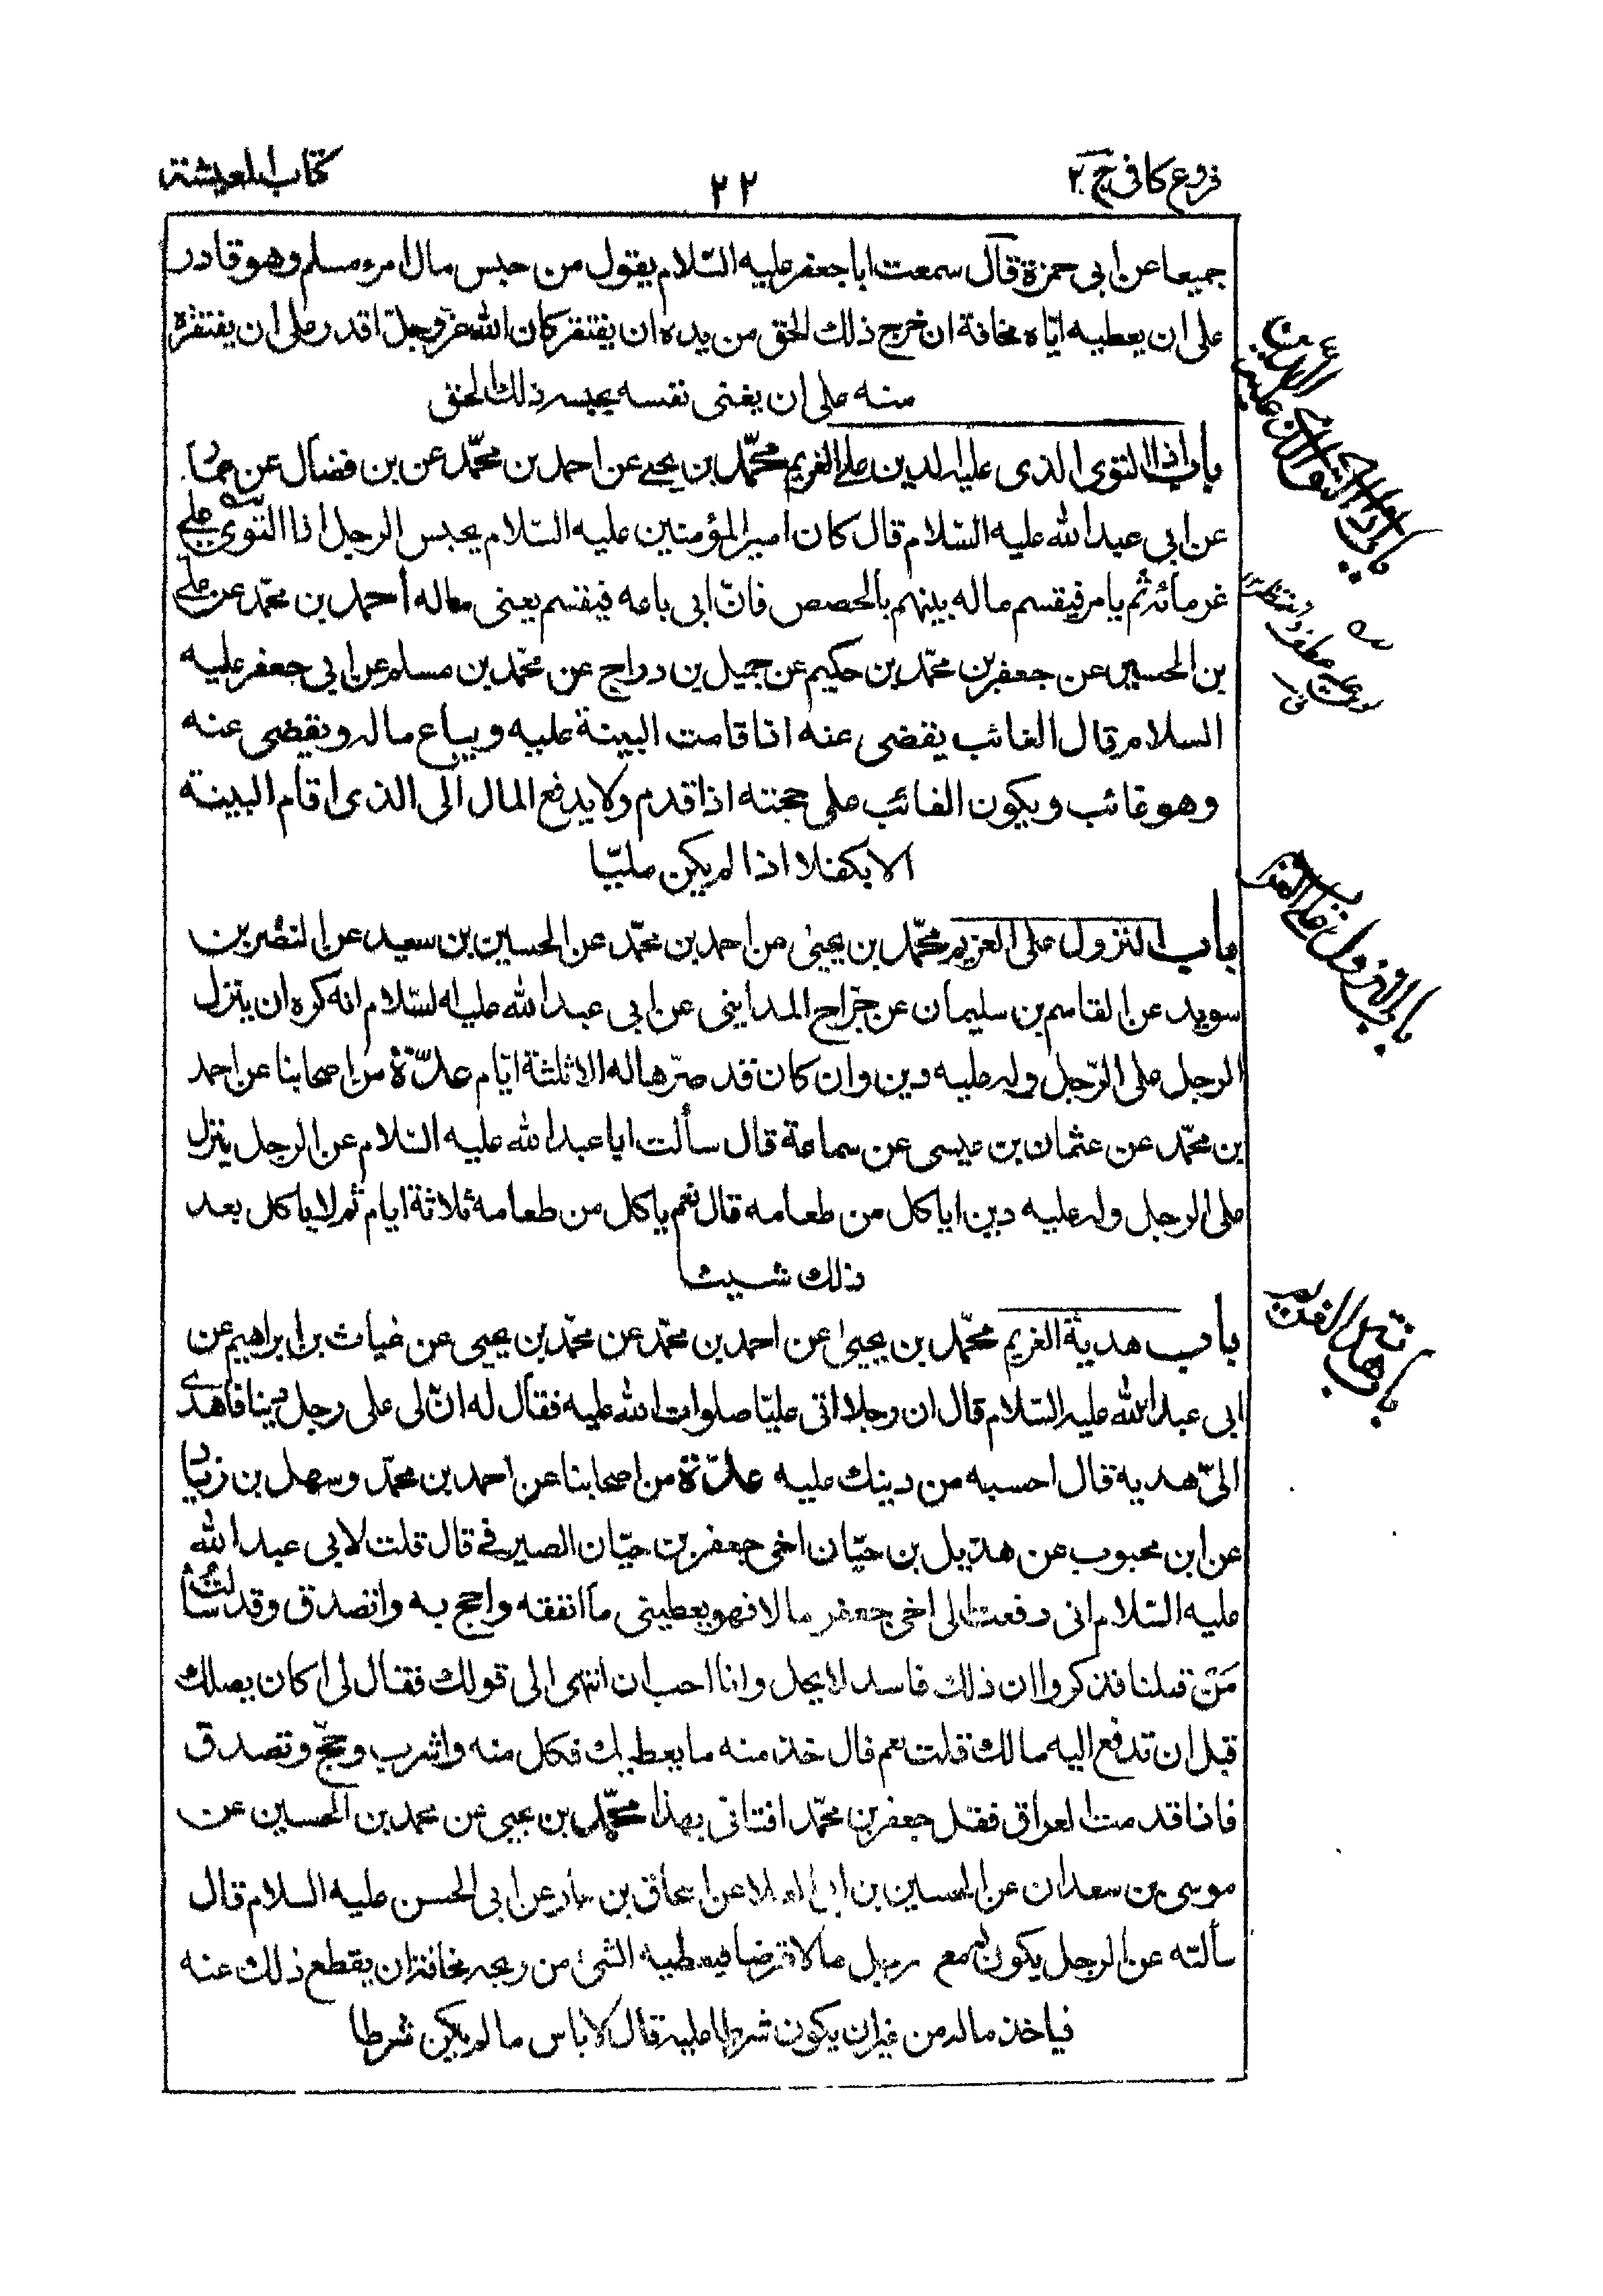 فروع كافى ج ٢
٢٢
كتاب المعيشة
جميعا عن ابى حمزة قال سمعت ابا جعفر عليه السّلام يقول من حبس مال امرء مسلم وهو قادر
على ان يعطيه ايّاه مخافة ان خرج ذلك الحق من يده ان يفتقر كان الله عزّ وجلّ اقدر على ان يفتقره
منه على ان يغنى نفسه بحبسه ذلك الحق
باب اذا التوى الذى عليه الدين على الغريم محمّد بن يحيى عن احمد بن محمّد عن بن فضال عن عمّار
عن ابى عبد الله عليه السّلام قال كان امير المؤمنين عليه السّلام يحبس الرجل اذا التوى على
غرمائه ثم يامر فيقسم ماله بينهم بالحصص فانّ ابى باعه فيقسم يعنى ماله أحمد بن محمّد عن على
بن الحسين عن جعفر بن محمّد بن حكيم عن جميل بن دراج عن محمّد بن مسلم عن ابى جعفر عليه
السلام قال الغائب يقضى عنه اذا قامت البينة عليه ويباع ماله ويقضى عنه
وهو غائب ويكون الغائب على حجته اذا قدم ولا يدفع المال الى الذى اقام البينة
الا بكفلا اذا لم يكن مليّا
باب النزول على الغريم محمّد بن يحيى عن احمد بن محمّد عن الحسين بن سعيد عن النضر بن
سويد عن القاسم بن سليمان عن جرّاح المداينى عن ابى عبد الله عليه السّلام انه كره ان ينزل
الرجل على الرّجل وله عليه دين وان كان قد صرّها له الا ثلثة ايّام عدّة من اصحابنا عن احمد
بن محمّد عن عثمان بن عيسى عن سماعة قال سألت ابا عبد الله عليه السّلام عن الرجل ينزل
على الرجل وله عليه دين اياكل من طعامه قال نعم ياكل من طعامه ثلاثة ايام ثم لا ياكل بعد
ذلك شيئا
باب هدية الغريم محمّد بن يحيى عن احمد بن محمّد عن محمّد بن يحيى عن غياث بن ابراهيم عن
ابى عبد الله عليه السّلام قال ان رجلا اتى عليّا صلوات الله عليه فقال له انّ لى على رجل دينا فاهدى
الىّ هدية قال احسبه من دينك عليه عدّة من اصحابنا عن احمد بن محمّد وسهل بن زياد
عن ابن محبوب عن هذيل بن حيّان اخى جعفر بن حيّان الصيرفى قال قلت لابى عبد الله
عليه السّلام انى دفعت الى اخى جعفر مالا فهو يعطينى ما انفقه واحج به واتصدق وقد سألت
مَن قبلنا فذكروا ان ذلك فاسد لا يحل وانا احب ان انتهى الى قولك فقال لى اكان يصلك
قبل ان تدفع اليه مالك قلت نعم قال خذ منه ما يعطيك فكل منه واشرب وحجّ وتصدق
فاذا قدمت العراق فقل جعفر بن محمّد افتانى بهذا محمّد بن يحيى عن محمد بن الحسين عن
موسى بن سعدان عن الحسين بن ابى العلا عن اسحاق بن عمار عن ابى الحسن عليه السلام قال
سألته عن الرجل يكون له مع رجل مالا قرضا فيعطيه الشئ من ربحه مخافة ان يقطع ذلك عنه
فياخذ ماله من غير ان يكون شرط عليه قال لا باس ما لم يكن شرطا
باب النزول على الغريم
باب هدية الغريم